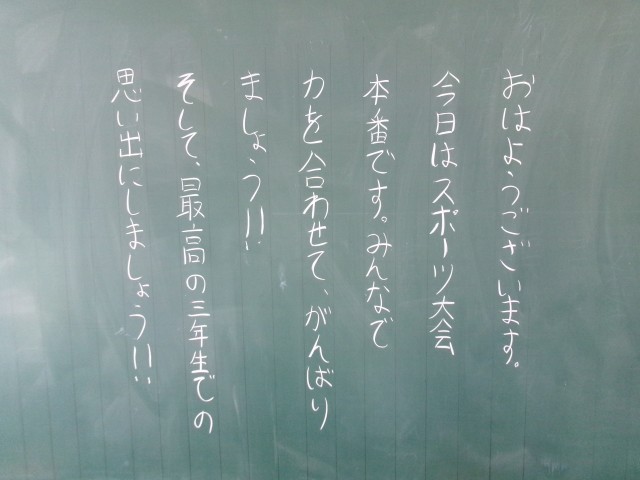 おはようございます。
今日はスポーツ大会
本番です。みんなで
力を合わせて、がんばり
ましょう!!
そして、最高の三年生での
思い出にしましょう!!